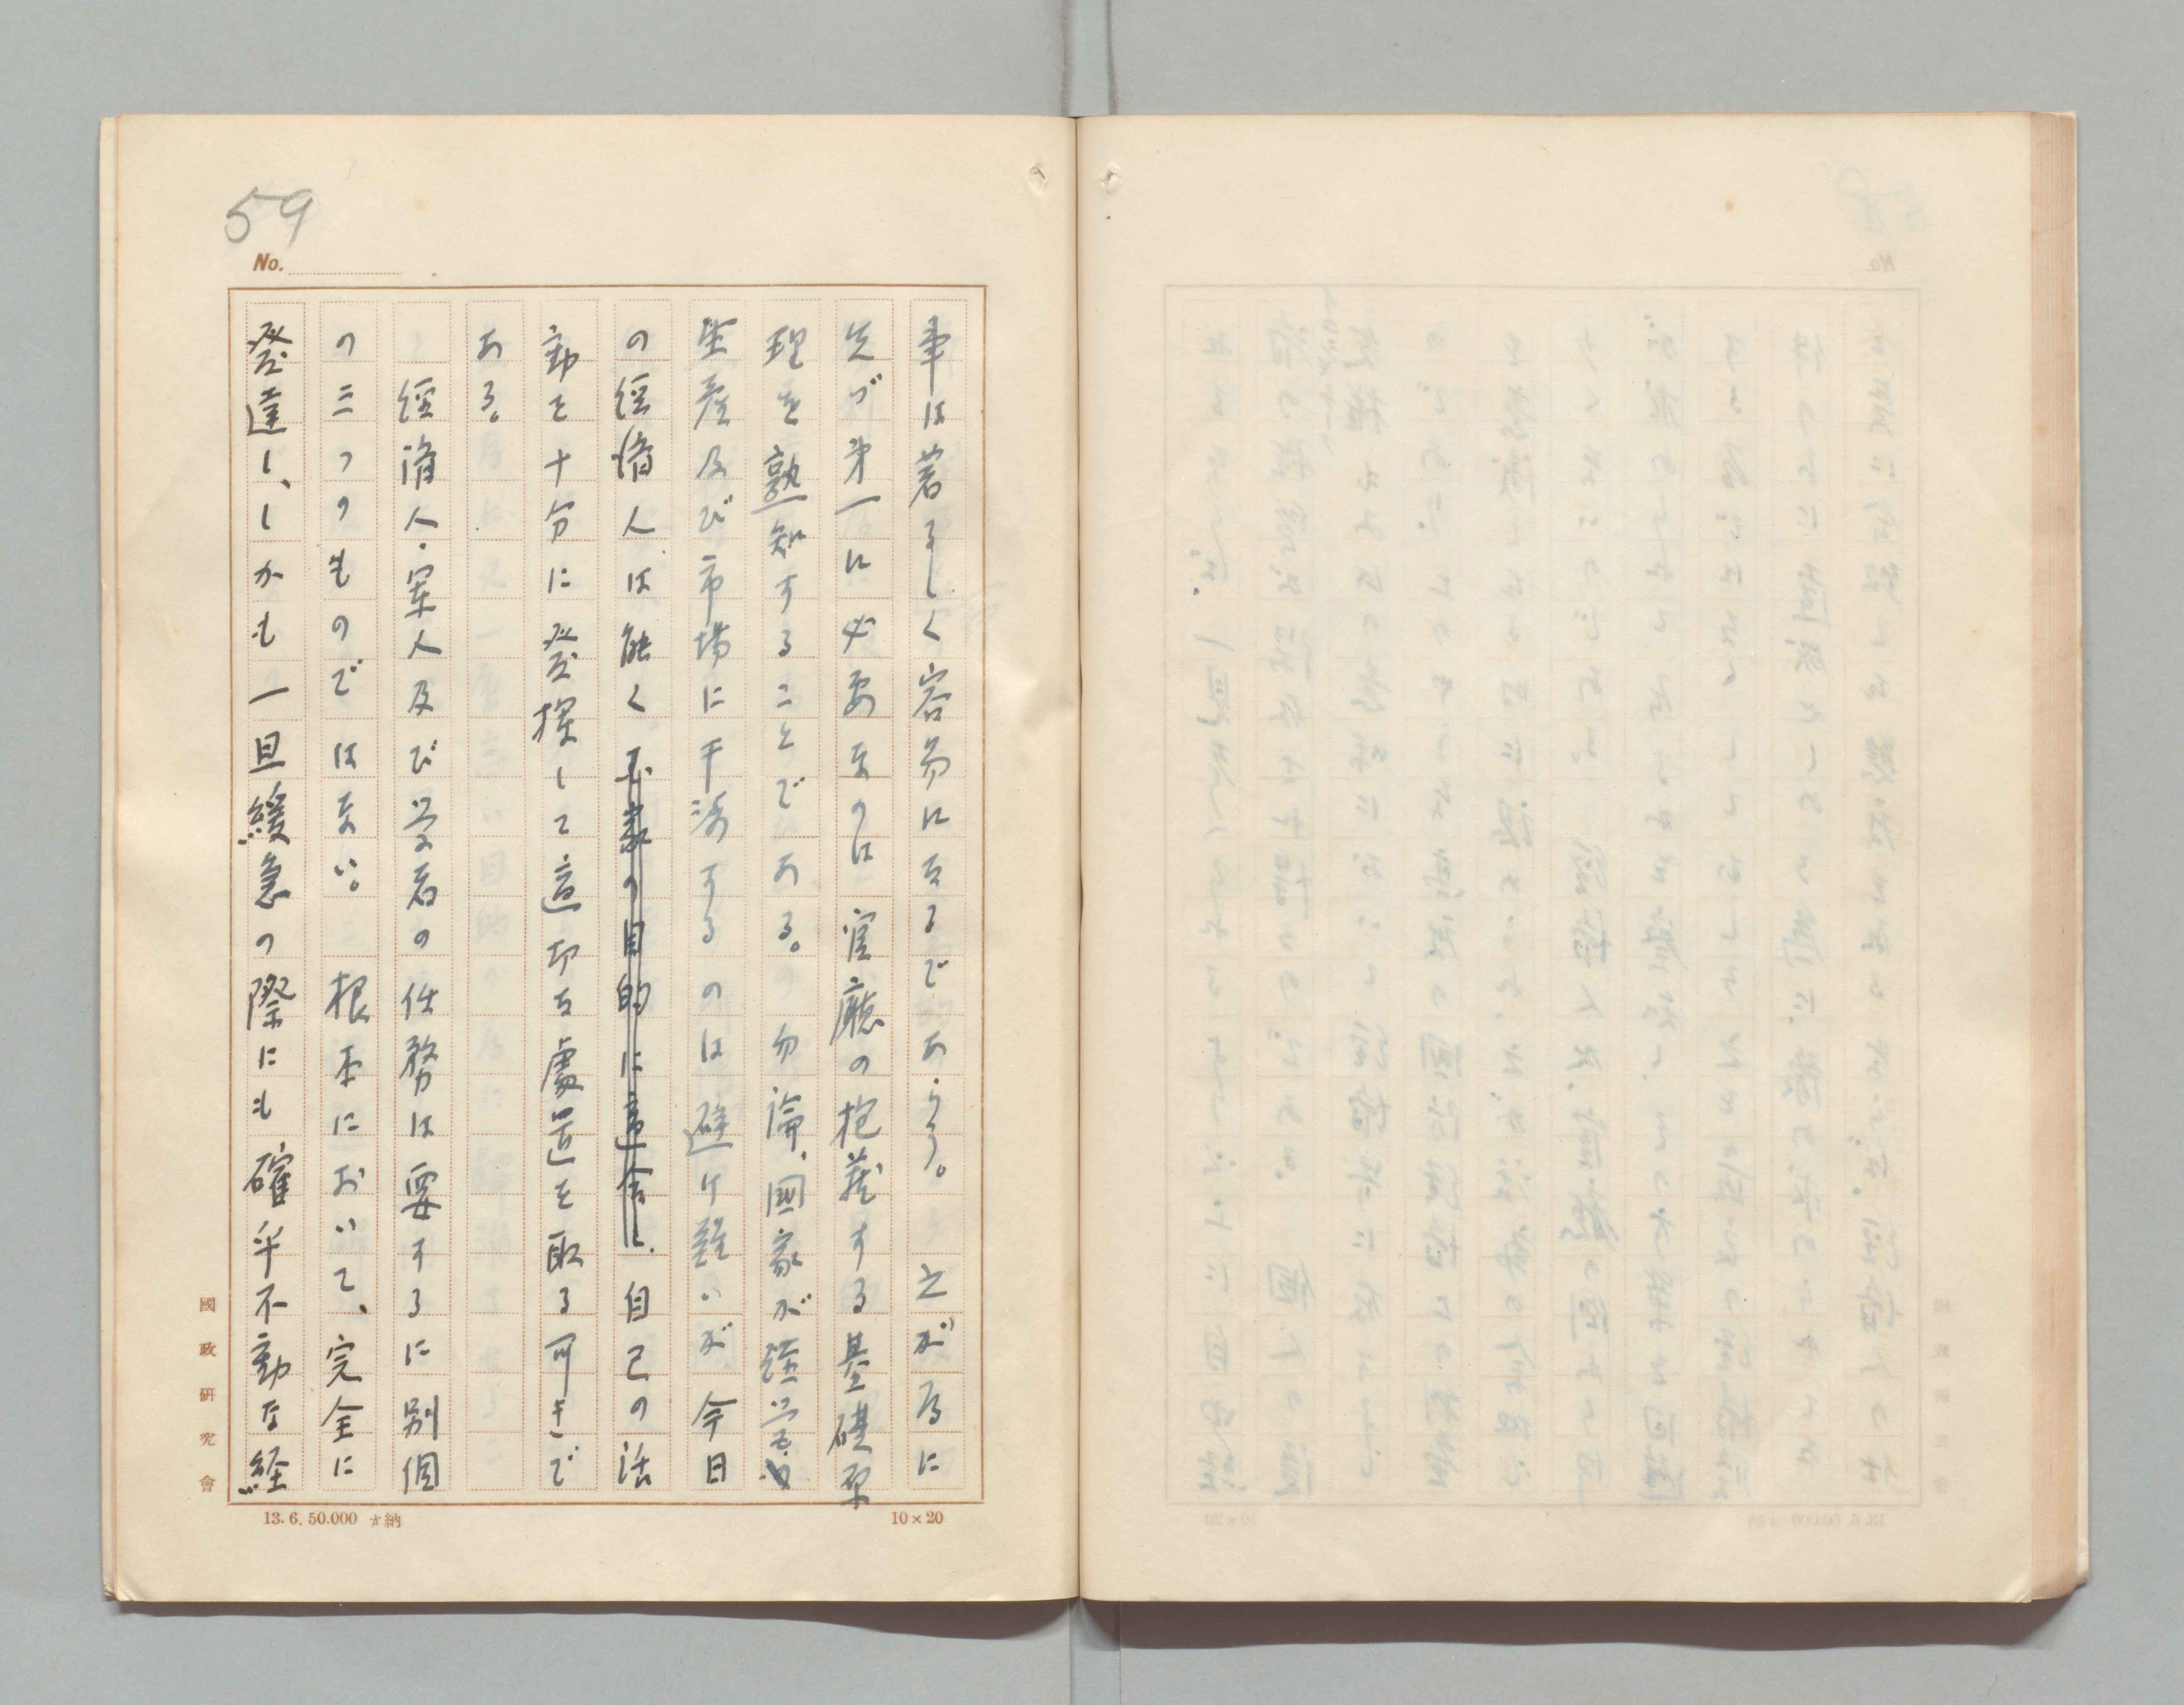 59
No.
事は著るしく容易になるであらう。之が為に
先づ第一に必要なのは官廳の抱懐する基礎原
理を熟知することである。勿論、國家が経営的
生産及び市場に干渉するのは避け難いが、今日
の経済人は能く國家の目的に適合し、自己の活
動を十分に発揮して適切な處置を取る可きで
ある。
経済人・軍人及び学者の任務は要するに別個
の三つのものではない。根本において、完全に
発達し、しかも一旦緩急の際にも確乎不動な経
國政研究會
13.6.50.000 納
10×20